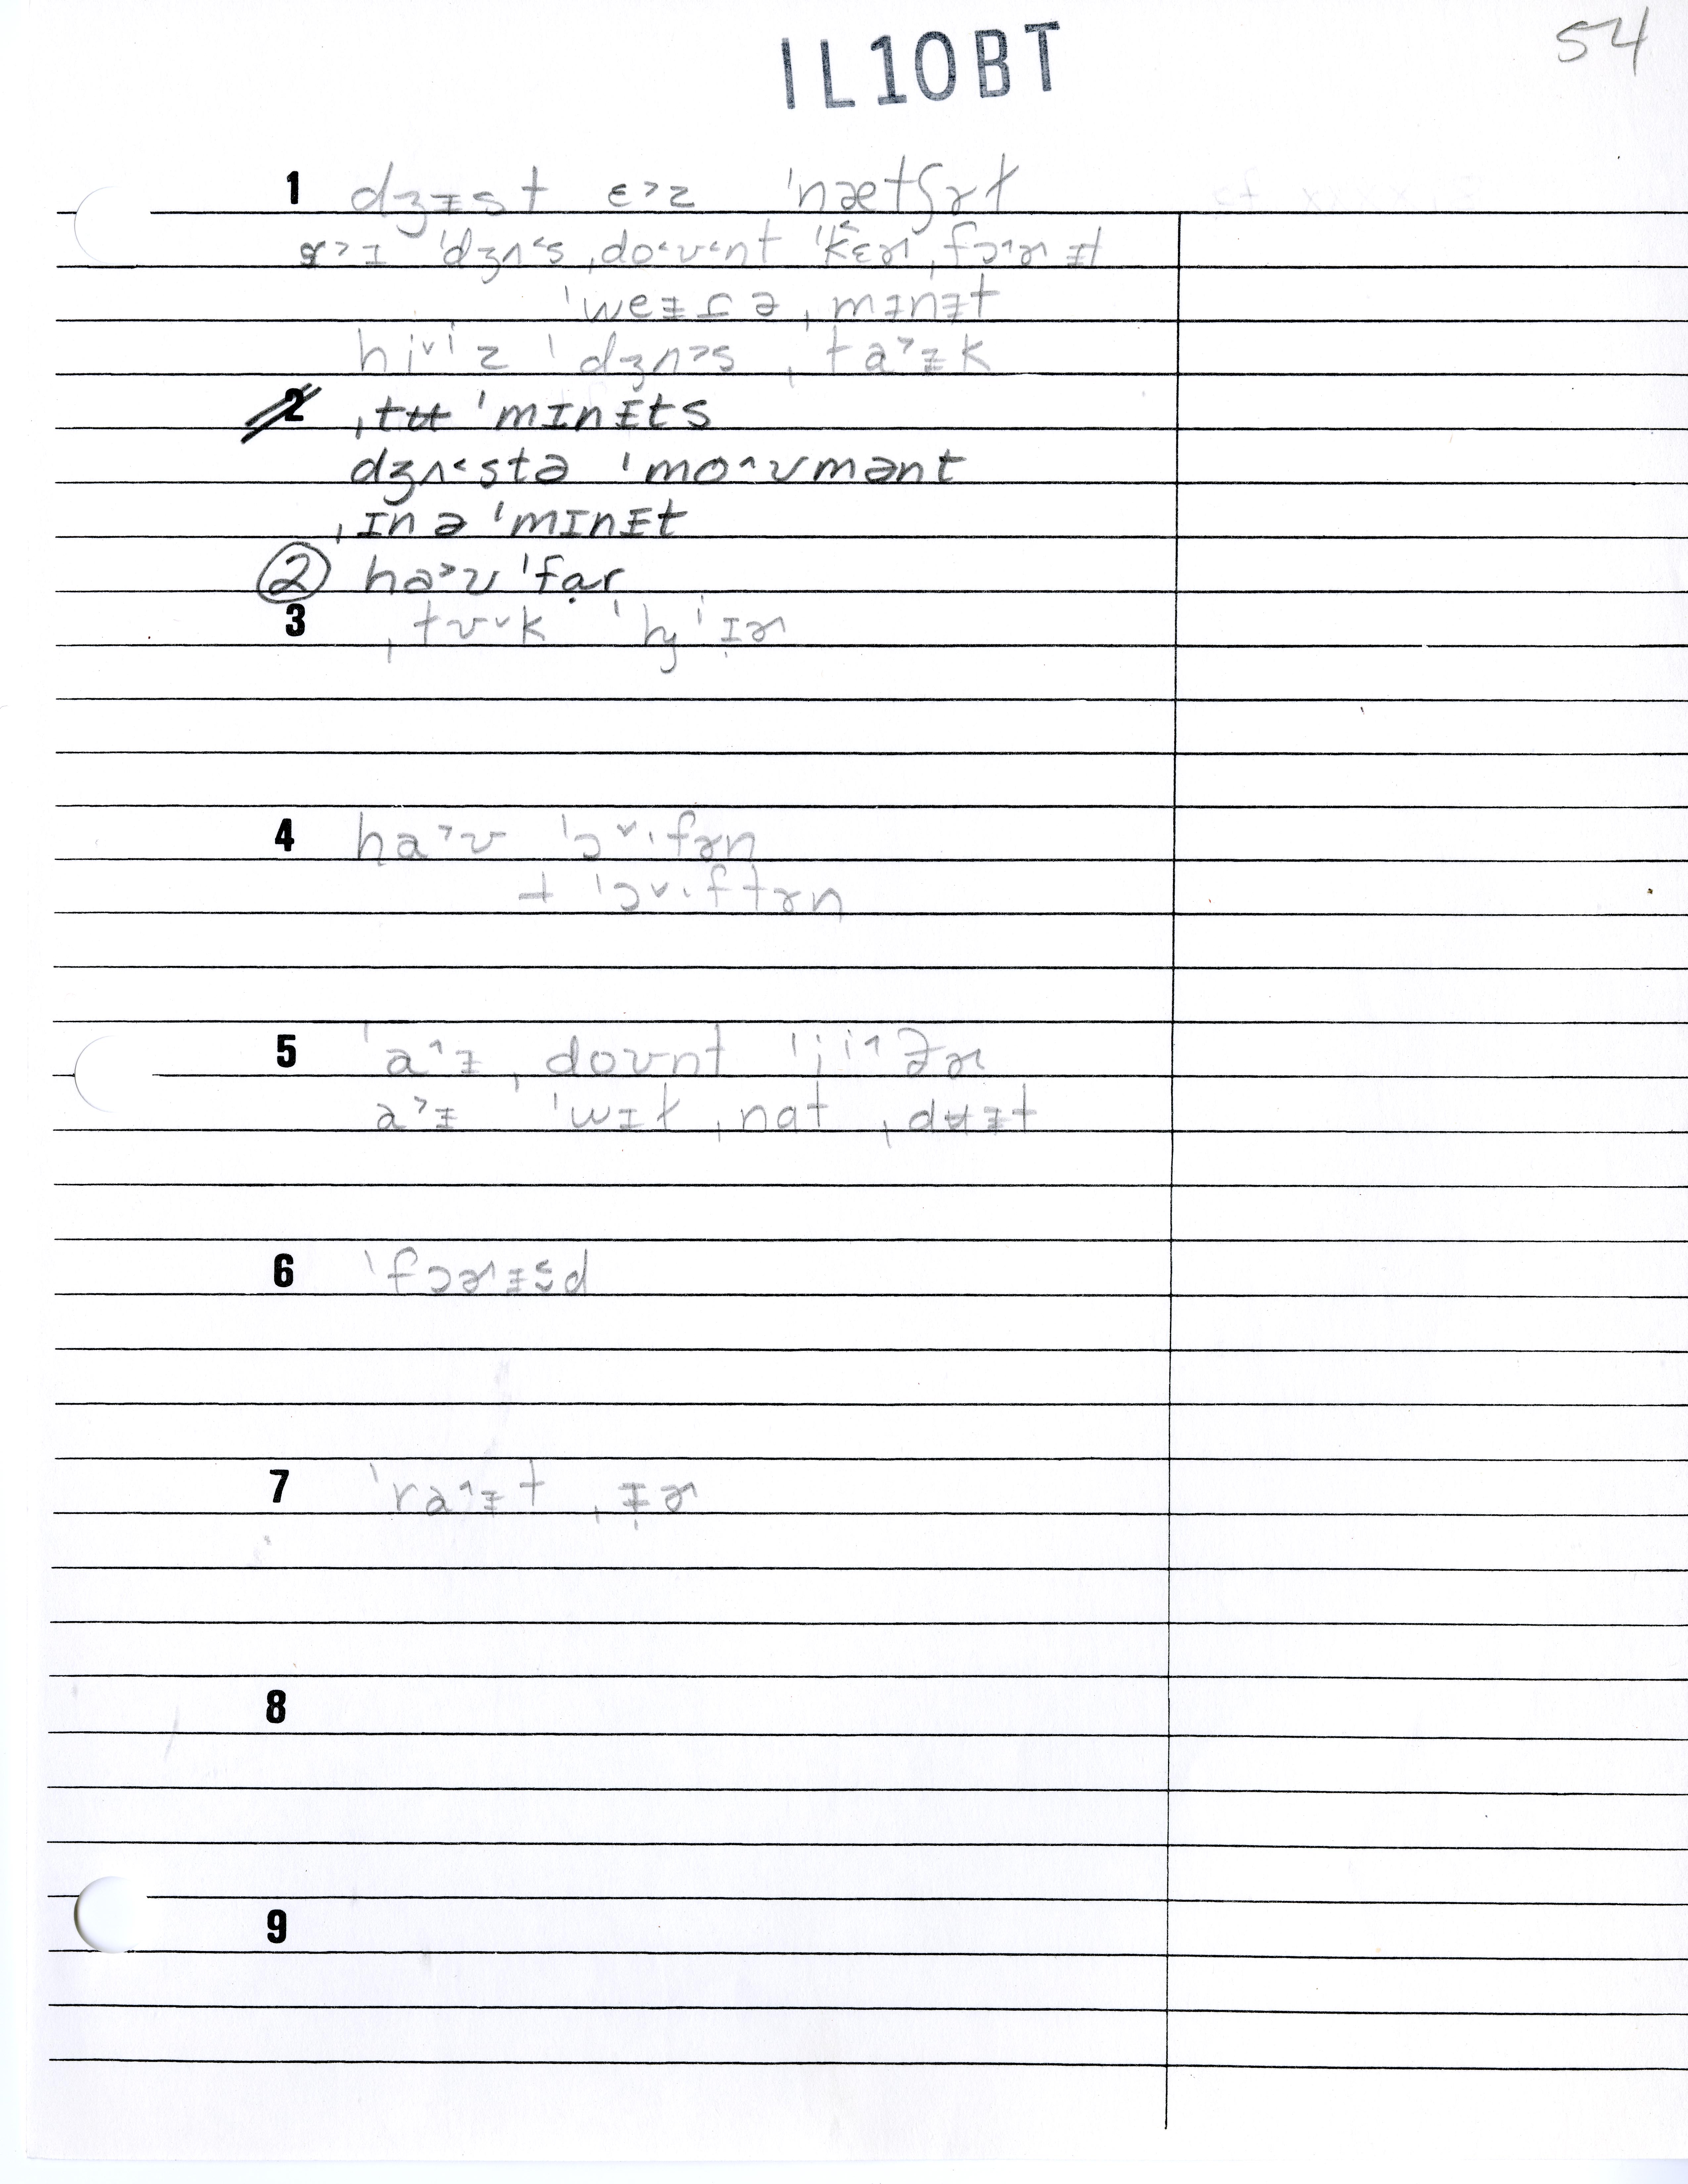 IL10BT
54
1 dʒɨst ɛ˃z ˈnætʃɚɫ
a˃ɪ ˈdʒʌ˂s ˌdo˂ʊ˂nt ˈkɛɚ ˌfɔ˄ɚ ɨt
ˈweɪɾ ə ˌmɪnɨt
hi˅ˈz ˈdʒʌ˃s ˌta˃ɪk
2 ˌtʉ ˈmɪnɨts
dʒʌ˂stə ˈmo˄ʊmənt
ˌɪn ə ˈmɪnɨt
② ha˃ʊ ˈfɑr
3 ˌtʊ˅k ˈhj ˈɪɚ
4 ha˃ʊ ˈɔ˅ˑfɚn
+ ˈɔ˅ˑftɚn
5 ˈa˄ɪ ˌdoʊnt ˈiˑ˄ðɚ
a˃ɪ ˈwɪɫ ˌnɑt ˌdʉɨt
6 ˈfɔɚɨsd
7 ˈra˄ɪt ˌɪɚ
8
9